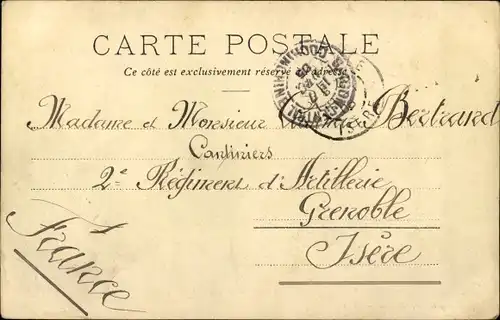 CARTE POSTALE
Ce côté est exclusivement réservé à l'adresse
Madame et Monsieur Bertrand
Cantiniers
2e Régiment d'Artillerie
Grenoble
Isère
France